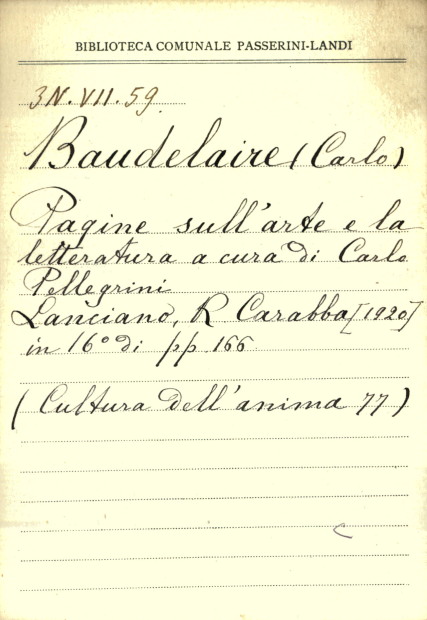 BIBLIOTECA COMUNALE PASSERINI-LANDI
3N.VII.59
Baudelaire (Carlo)
Pagine sull'arte e la
letteratura a cura di Carlo
Pellegrini
Lanciano, R Carabba [1920]
in 16° di pp. 166
(Cultura dell'anima 77)